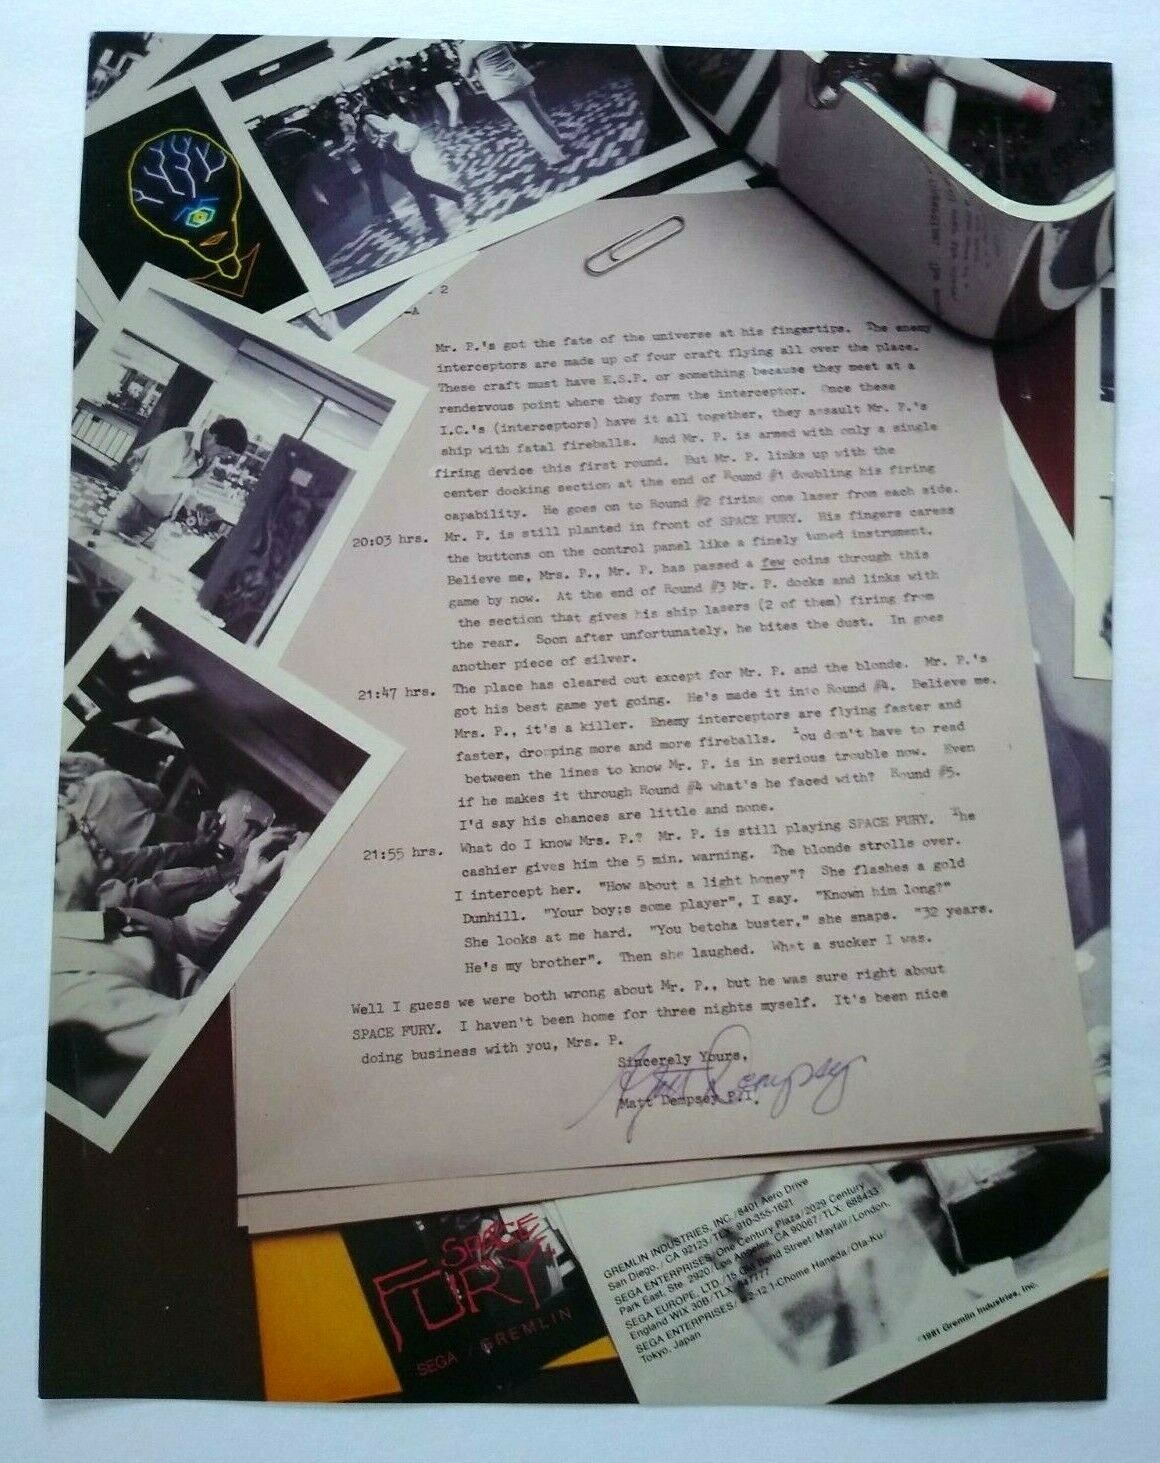 2
-A
Mr. P.'s got the fate of the universe at his fingertips. The enemy
interceptors are made up of four craft flying all over the place.
These craft must have E.S.P. or something because they meet at a
rendezvous point where they form the interceptor. Once these
I.C.'s (interceptors) have it all together, they assault Mr. P.'s
ship with fatal fireballs. And Mr. P. is armed with only a single
firing device this first round. But Mr. P. links up with the
center docking section at the end of Round #1 doubling his firing
capability. He goes on to Round #2 firing one laser from each side.
20:03 hrs. Mr. P. is still planted in front of SPACE FURY. His fingers caress
the buttons on the control panel like a finely tuned instrument.
Believe me, Mrs. P., Mr. P. has passed a few coins through this
game by now. At the end of Round #3 Mr. P. docks and links with
the section that gives his ship lasers (2 of them) firing from
the rear. Soon after unfortunately, he bites the dust. In goes
another piece of silver.
21:47 hrs. The place has cleared out except for Mr. P. and the blonde. Mr. P.'s
got his best game yet going. He's made it into Round #4. Believe me.
Mrs. P., it's a killer. Enemy interceptors are flying faster and
faster, dropping more and more fireballs. You don't have to read
between the lines to know Mr. P. is in serious trouble now. Even
if he makes it through Round #4 what's he faced with? Round #5.
I'd say his chances are little and none.
21:55 hrs. What do I know Mrs. P.? Mr. P. is still playing SPACE FURY. The
cashier gives him the 5 min. warning. The blonde strolls over.
I intercept her. "How about a light honey"? She flashes a gold
Dunhill. "Your boy;s some player", I say. "Known him long?"
She looks at me hard. "You betcha buster," she snaps. "32 years.
He's my brother". Then she laughed. What a sucker I was.
Well I guess we were both wrong about Mr. P., but he was sure right about
SPACE FURY. I haven't been home for three nights myself. It's been nice
doing business with you, Mrs. P.
Sincerely Yours,
Matt Dempsey
Matt Dempsey P.I.
SPACE
FURY
SEGA / GREMLIN
GREMLIN INDUSTRIES, INC./8401 Aero Drive
San Diego,/CA 92123/TLX: 910-355-1621
SEGA ENTERPRISES/One Century Plaza/2029 Century
Park East, Ste. 2920/Los Angeles, CA 90067/TLX: 688433
SEGA EUROPE, LTD./15 Old Bond Street/Mayfair/London,
England WIX 30B/TLX:
SEGA ENTERPRISES/ 1-Chome Haneda/Ota-Ku/
Tokyo, Japan
©1981 Gremlin Industries, Inc.